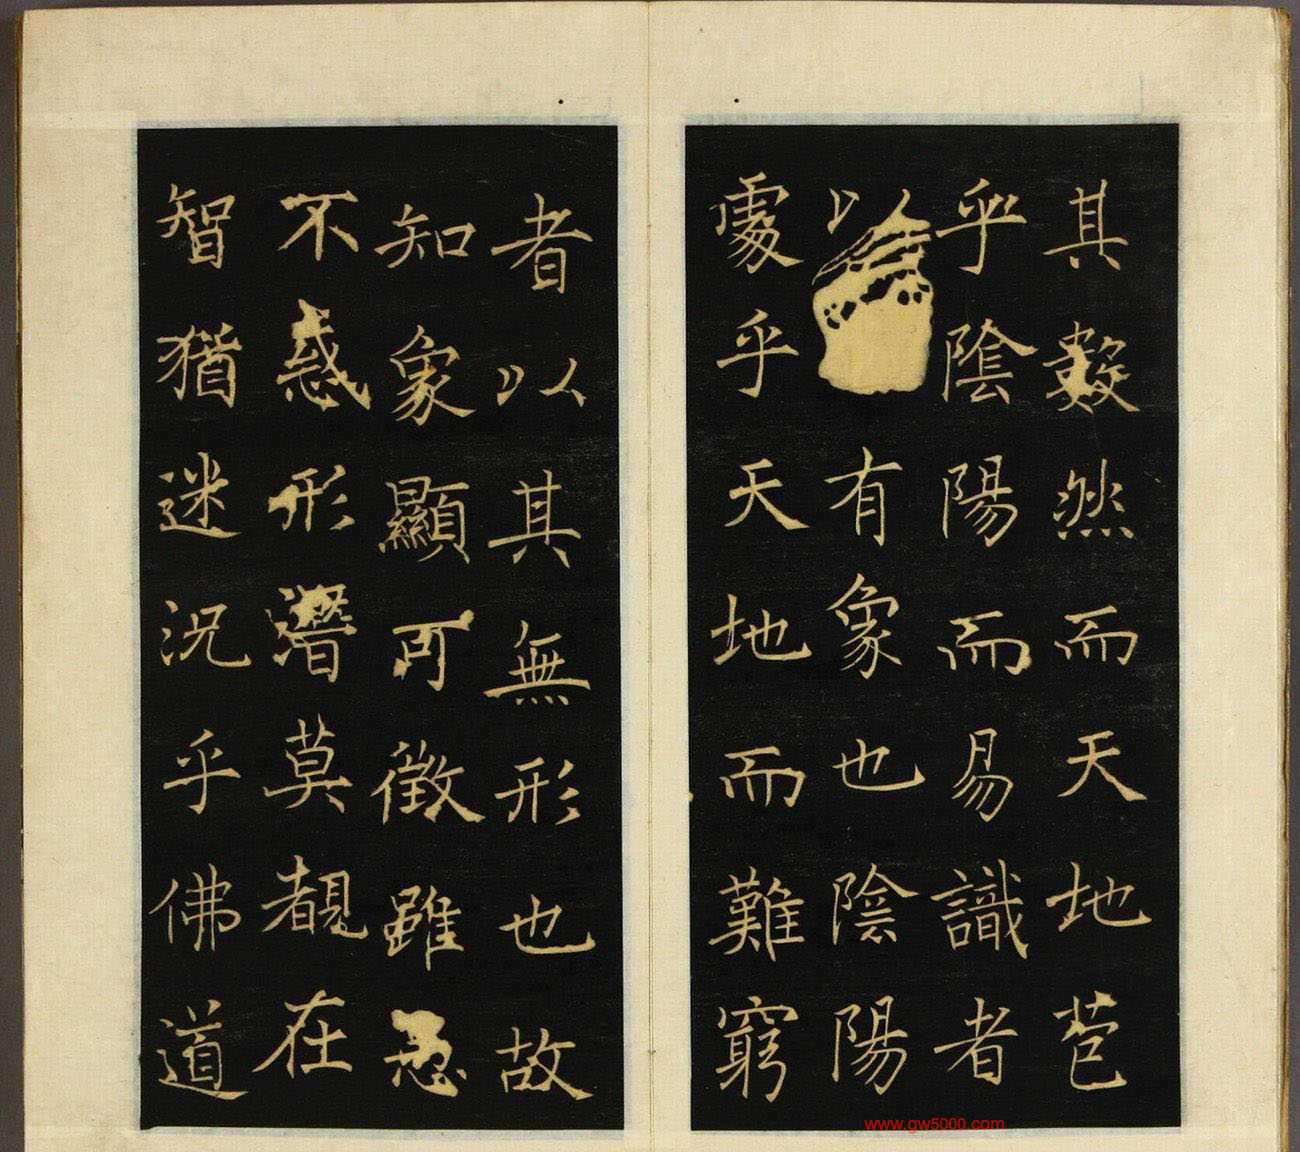 其數然而天地苞
乎陰陽而易識者
以有象也陰陽
處乎天地而難窮
者以其無形也故
知象顯可徵雖愚
不惑形潛莫覩在
智猶迷況乎佛道
www.gw5000.com